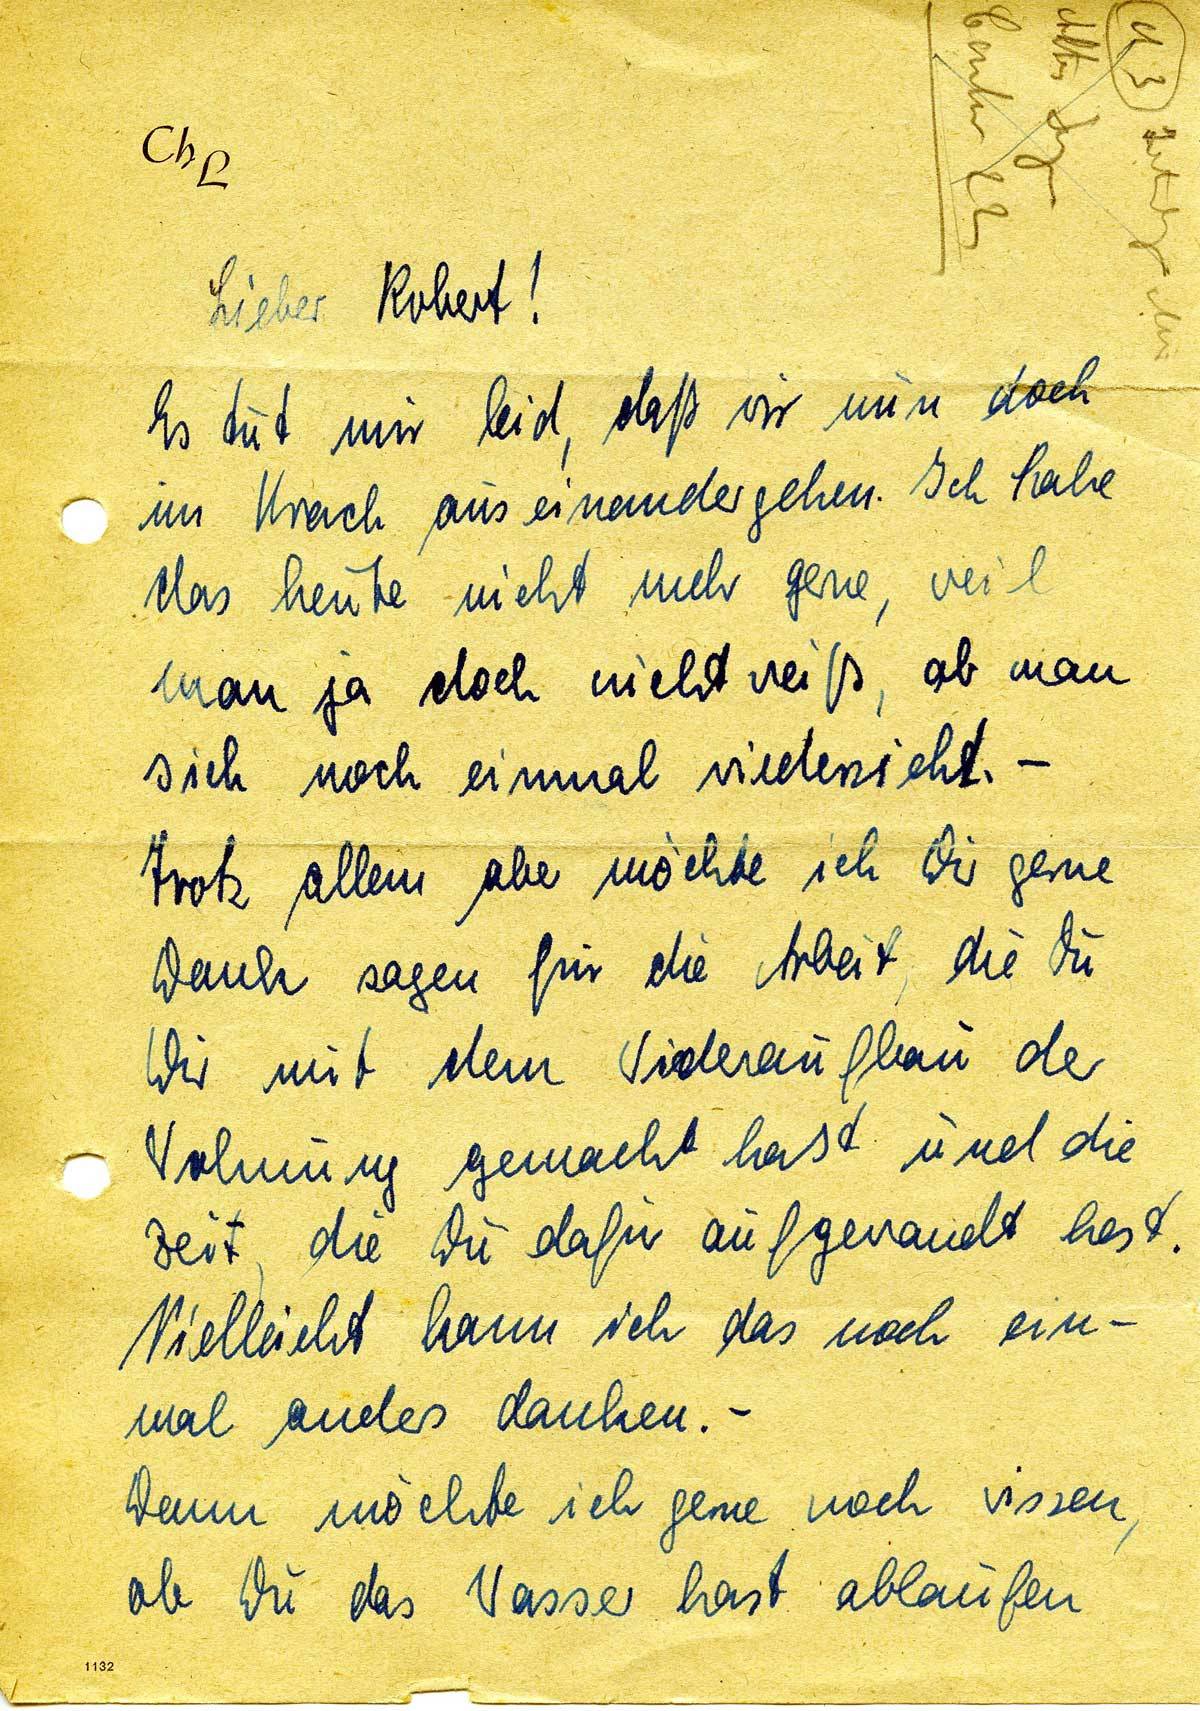 Ch L
Lieber Robert!
Es tut mir leid, daß wir nun doch
im Krach auseinandergehen. Ich habe
das heute nicht mehr gerne, weil
man ja doch nicht weiß, ob man
sich noch einmal wiedersieht. –
Trotz allem aber möchte ich Dir gerne
Dank sagen für die Arbeit, die Du
Dir mit dem Wideraufbau der
Wohnung gemacht hast und die
Zeit, die Du dafür aufgewandt hast.
Vielleicht kann ich das noch ein-
mal anders danken. –
Dann möchte ich gerne noch wissen,
ob Du das Wasser hast ablaufen
1132